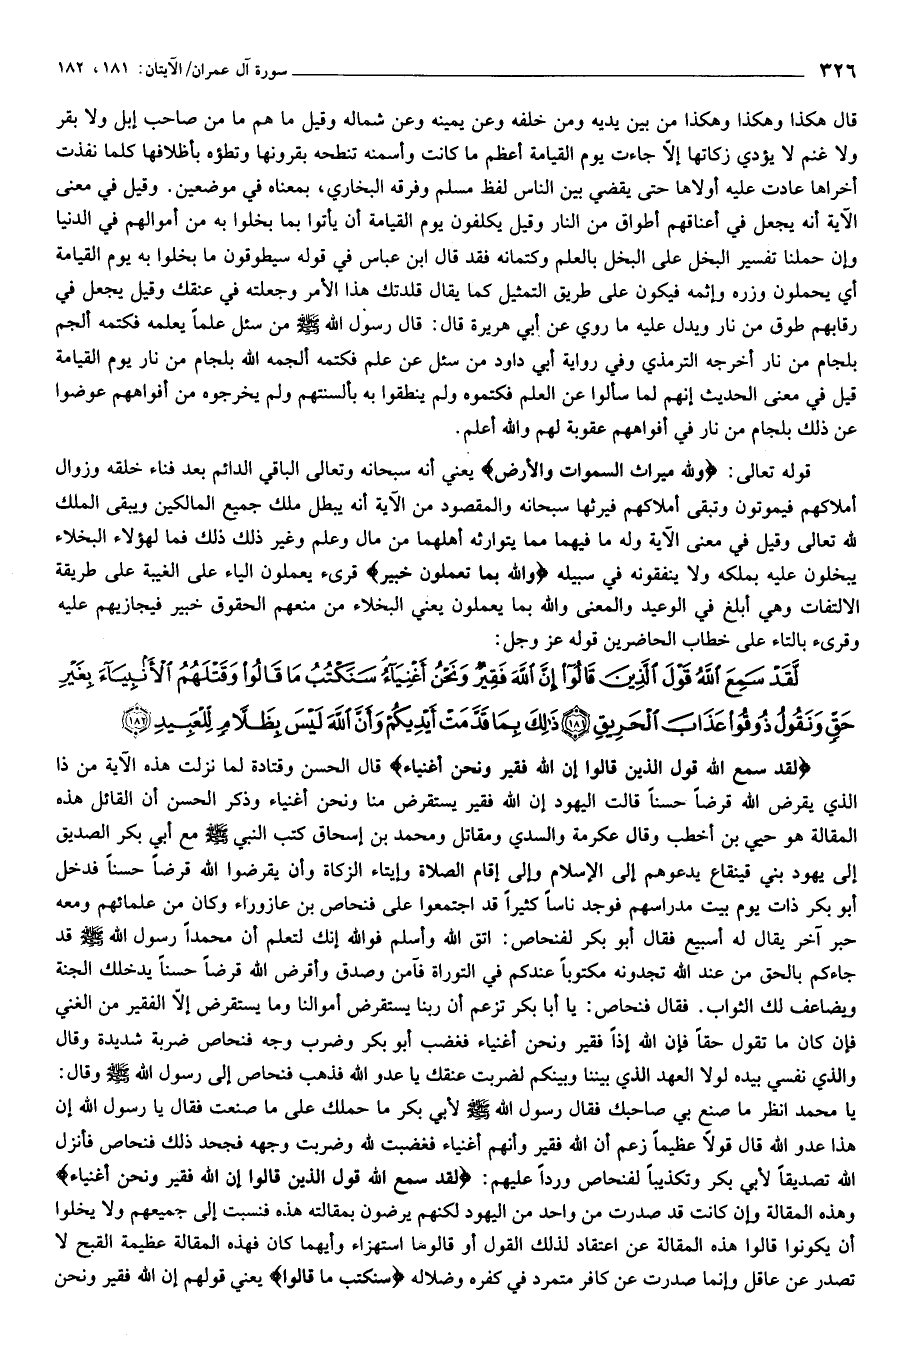 ٣٢٦ سورة آل عمران/ الآيتان: ١٨١، ١٨٢
قال هكذا وهكذا وهكذا من بين يديه ومن خلفه وعن يمينه وعن شماله وقيل ما هم ما من صاحب إبل ولا بقر
ولا غنم لا يؤدي زكاتها إلاّ جاءت يوم القيامة أعظم ما كانت وأسمنه تنطحه بقرونها وتطؤه بأظلافها كلما نفذت
أخراها عادت عليه أولاها حتى يقضي بين الناس لفظ مسلم وفرقه البخاري، بمعناه في موضعين. وقيل في معنى
الآية أنه يجعل في أعناقهم أطواق من النار وقيل يكلفون يوم القيامة أن يأتوا بما بخلوا به من أموالهم في الدنيا
وإن حملنا تفسير البخل على البخل بالعلم وكتمانه فقد قال ابن عباس في قوله سيطوقون ما بخلوا به يوم القيامة
أي يحملون وزره وإثمه فيكون على طريق التمثيل كما يقال قلدتك هذا الأمر وجعلته في عنقك وقيل يجعل في
رقابهم طوق من نار ويدل عليه ما روي عن أبي هريرة قال: قال رسول الله ﷺ من سئل علماً يعلمه فكتمه ألجم
بلجام من نار أخرجه الترمذي وفي رواية أبي داود من سئل عن علم فكتمه ألجمه الله بلجام من نار يوم القيامة
قيل في معنى الحديث إنهم لما سألوا عن العلم فكتموه ولم ينطقوا به بألسنتهم ولم يخرجوه من أفواههم عوضوا
عن ذلك بلجام من نار في أفواههم عقوبة لهم والله أعلم.
قوله تعالى: ﴿ولله ميراث السموات والأرض﴾ يعني أنه سبحانه وتعالى الباقي الدائم بعد فناء خلقه وزوال
أملاكهم فيموتون وتبقى أملاكهم فيرثها سبحانه والمقصود من الآية أنه يبطل ملك جميع المالكين ويبقى الملك
لله تعالى وقيل في معنى الآية وله ما فيهما مما يتوارثه أهلهما من مال وعلم وغير ذلك ذلك فما لهؤلاء البخلاء
يبخلون عليه بملكه ولا ينفقونه في سبيله ﴿والله بما تعملون خبير﴾ قرىء يعملون الياء على الغيبة على طريقة
الالتفات وهي أبلغ في الوعيد والمعنى والله بما يعملون يعني البخلاء من منعهم الحقوق خبير فيجازيهم عليه
وقرىء بالتاء على خطاب الحاضرين قوله عز وجل:
لَّقَدْ سَمِعَ اللَّهُ قَوْلَ الَّذِينَ قَالُوٓا إِنَّ اللَّهَ فَقِيرٌ وَنَحْنُ أَغْنِيَآءُ سَنَكْتُبُ مَا قَالُوا وَقَتْلَهُمُ الْأَنۢبِيَآءَ بِغَيْرِ
حَقٍّ وَنَقُولُ ذُوقُوا عَذَابَ الْحَرِيقِ ﴿١٨١﴾ ذَٰلِكَ بِمَا قَدَّمَتْ أَيْدِيكُمْ وَأَنَّ اللَّهَ لَيْسَ بِظَلَّامٍ لِّلْعَبِيدِ ﴿١٨٢﴾
﴿لقد سمع الله قول الذين قالوا إن الله فقير ونحن أغنياء﴾ قال الحسن وقتادة لما نزلت هذه الآية من ذا
الذي يقرض الله قرضاً حسناً قالت اليهود إن الله فقير يستقرض منا ونحن أغنياء وذكر الحسن أن القائل هذه
المقالة هو حيي بن أخطب وقال عكرمة والسدي ومقاتل ومحمد بن إسحاق كتب النبي ﷺ مع أبي بكر الصديق
إلى يهود بني قينقاع يدعوهم إلى الإسلام وإلى إقام الصلاة وإيتاء الزكاة وأن يقرضوا الله قرضاً حسناً فدخل
أبو بكر ذات يوم بيت مدراسهم فوجد ناساً كثيراً قد اجتمعوا على فنحاص بن عازوراء وكان من علمائهم ومعه
حبر آخر يقال له أسبيع فقال أبو بكر لفنحاص: اتق الله وأسلم فوالله إنك لتعلم أن محمداً رسول الله ﷺ قد
جاءكم بالحق من عند الله تجدونه مكتوباً عندكم في التوراة فآمن وصدق وأقرض الله قرضاً حسناً يدخلك الجنة
ويضاعف لك الثواب. فقال فنحاص: يا أبا بكر تزعم أن ربنا يستقرض أموالنا وما يستقرض إلاّ الفقير من الغني
فإن كان ما تقول حقاً فإن الله إذاً فقير ونحن أغنياء فغضب أبو بكر وضرب وجه فنحاص ضربة شديدة وقال
والذي نفسي بيده لولا العهد الذي بيننا وبينكم لضربت عنقك يا عدو الله فذهب فنحاص إلى رسول الله ﷺ وقال:
يا محمد انظر ما صنع بي صاحبك فقال رسول الله ﷺ لأبي بكر ما حملك على ما صنعت فقال يا رسول الله إن
هذا عدو الله قال قولاً عظيماً زعم أن الله فقير وأنهم أغنياء فغضبت لله وضربت وجهه فجحد ذلك فنحاص فأنزل
الله تصديقاً لأبي بكر وتكذيباً لفنحاص ورداً عليهم: ﴿لقد سمع الله قول الذين قالوا إن الله فقير ونحن أغنياء﴾
وهذه المقالة وإن كانت قد صدرت من واحد من اليهود لكنهم يرضون بمقالته هذه فنسبت إلى جميعهم ولا يخلوا
أن يكونوا قالوا هذه المقالة عن اعتقاد لذلك القول أو قالوها استهزاء وأيهما كان فهذه المقالة عظيمة القبح لا
تصدر عن عاقل وإنما صدرت عن كافر متمرد في كفره وضلاله ﴿سنكتب ما قالوا﴾ يعني قولهم إن الله فقير ونحن